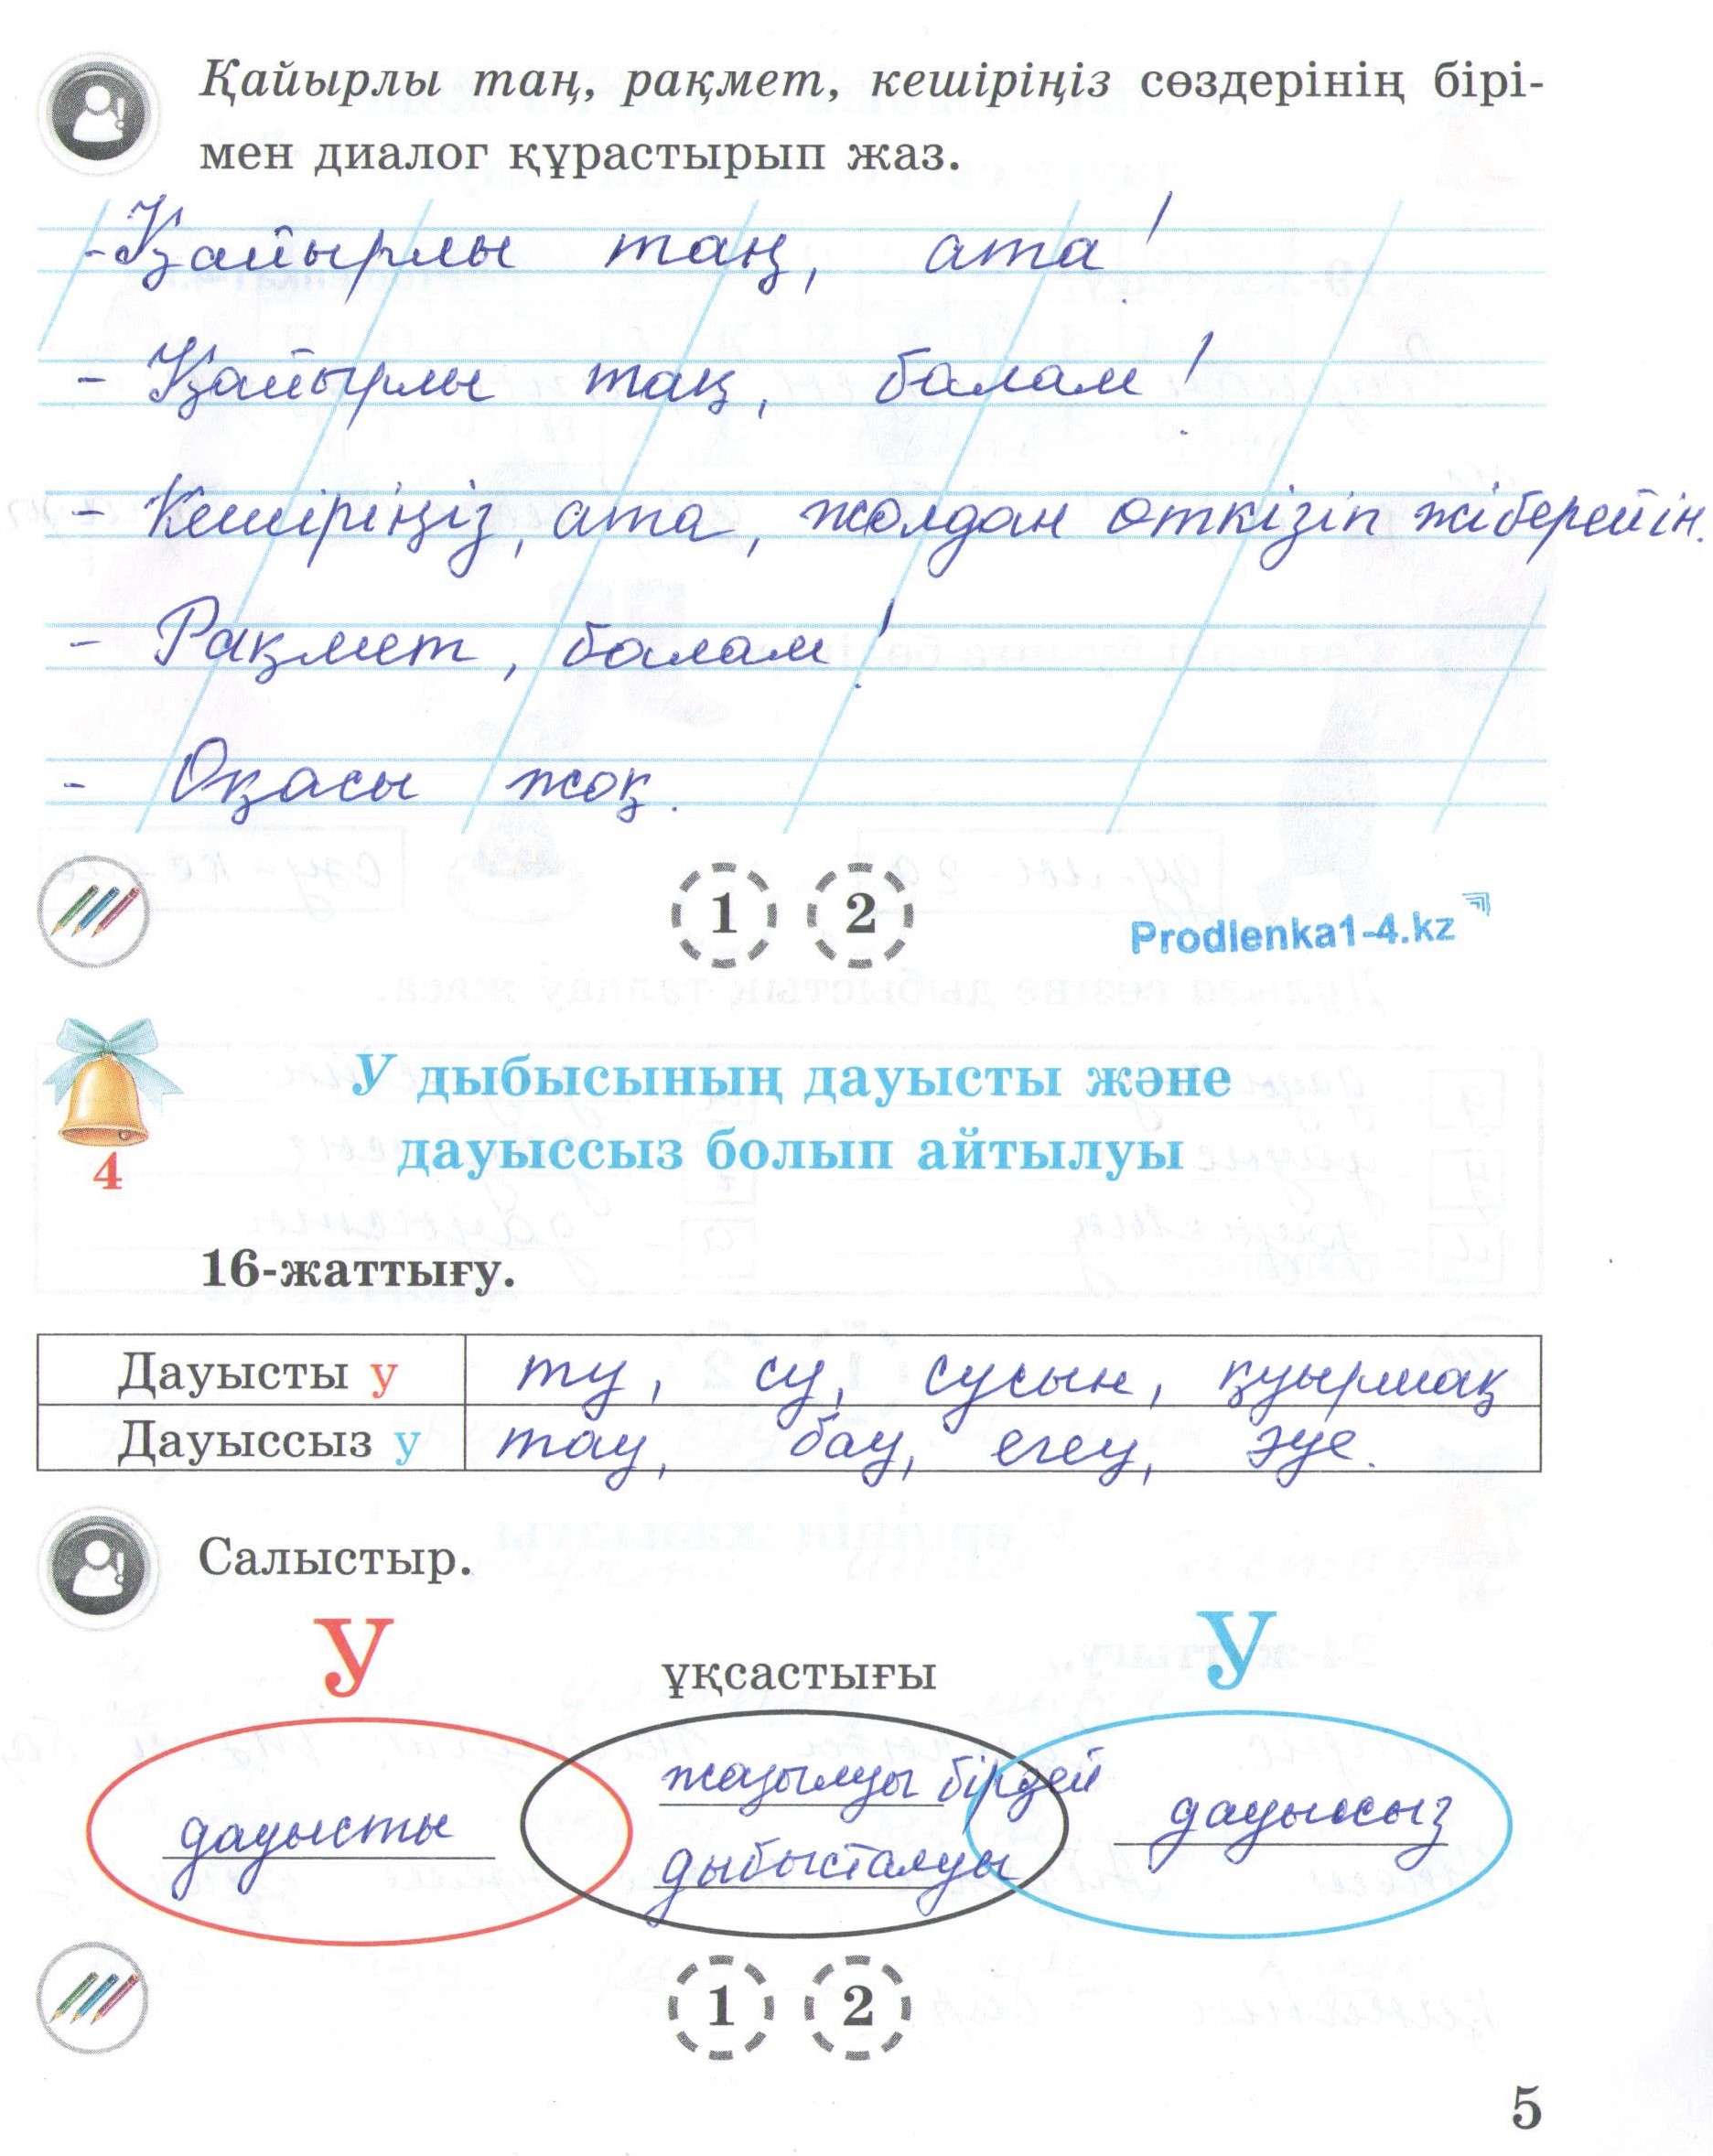 Қайырлы таң, рақмет, кешіріңіз сөздерінің бірі-
мен диалог құрастырып жаз.
- Қайырлы таң, ата!
- Қайырлы таң, балам!
- Кешіріңіз, ата, жолдан өткізіп жіберейін.
- Рақмет, балам!
- Оқасы жоқ.
1 2
Prodlenka1-4.kz
У дыбысының дауысты және
дауыссыз болып айтылуы
4
16-жаттығу.
Дауысты у ту, су, сусын, қуыршақ
Дауыссыз у тау, бау, егеу, әуе.
Салыстыр.
У ұқсастығы У
жазылуы бірдей
дауысты дауыссыз
дыбысталуы
1 2
5